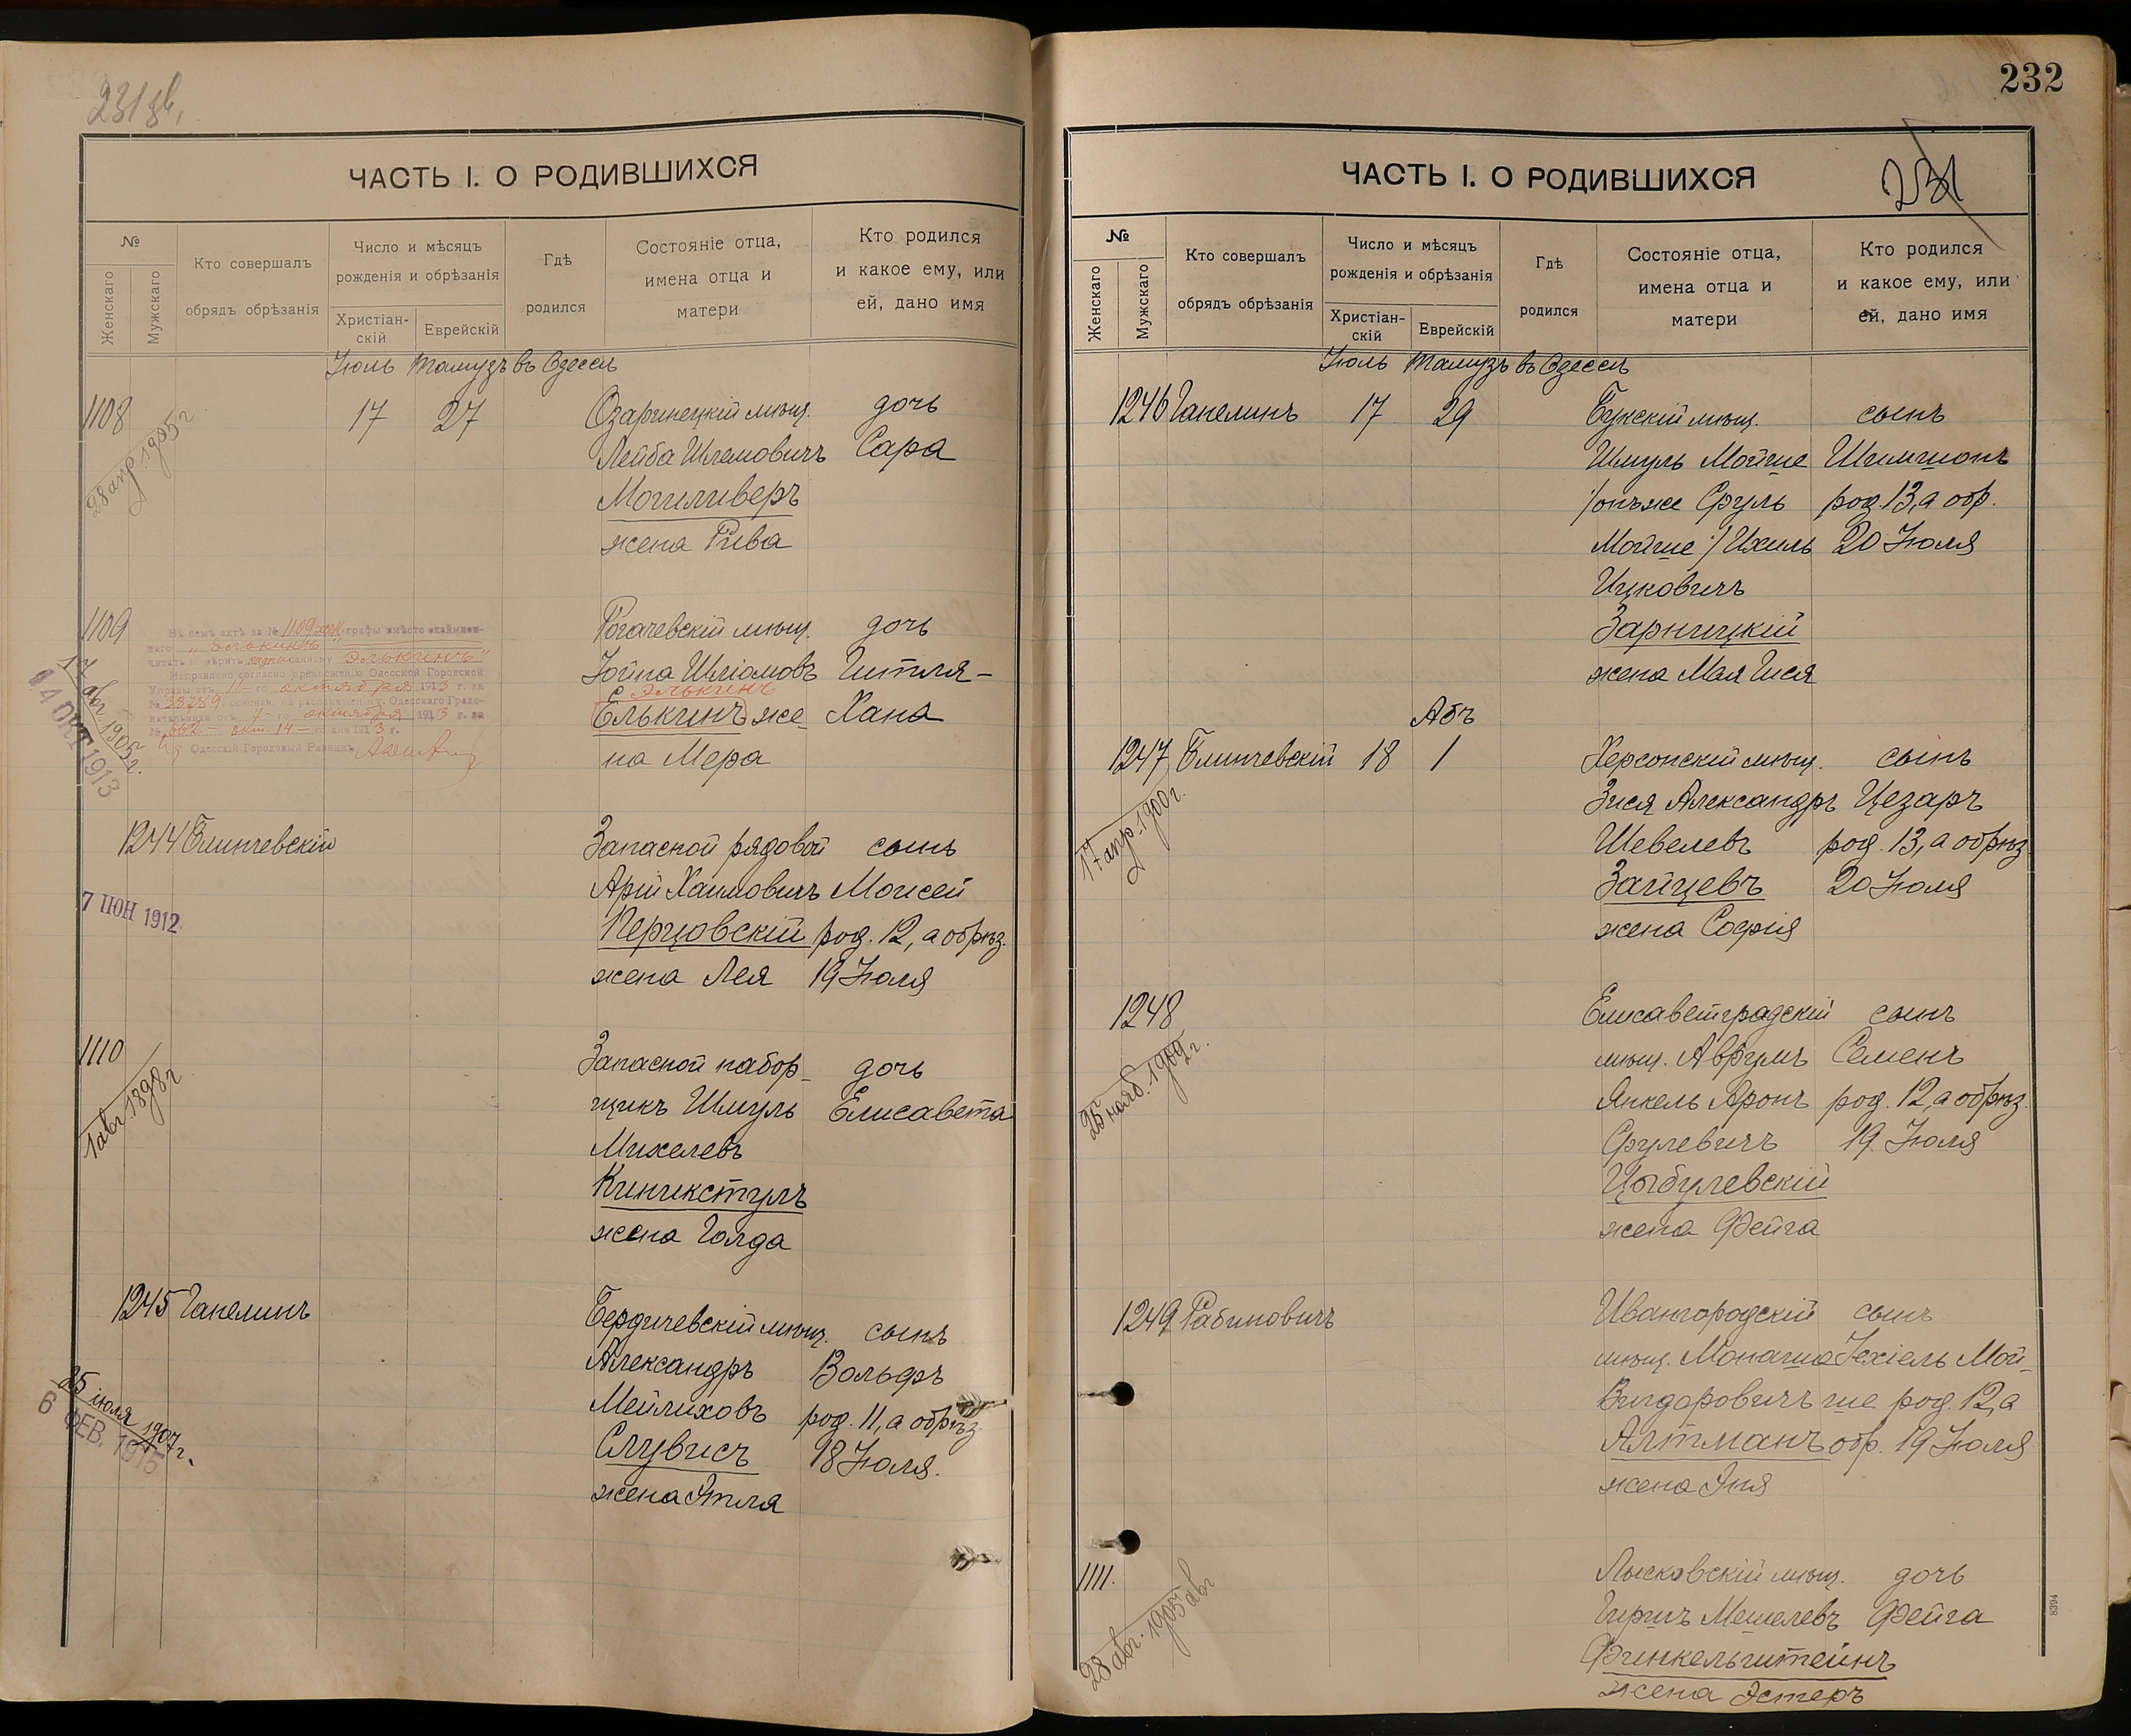 231 зв.
ЧАСТЬ I. О РОДИВШИХСЯ
№
Женскаго
Мужскаго
Кто совершалъ
обрядъ обрѣзанія
Число и мѣсяцъ
рожденія и обрѣзанія
Христіан-
скій
Еврейскій
Гдѣ
родился
Состояніе отца,
имена отца и
матери
Кто родился
и какое ему, или
ей, дано имя
Іюль Тамузъ въ Одессѣ
1108 17 27 Озаринецкій мѣщ. дочь
28 апр. 1905 г.
Лейба Шлемовичъ Сара
Могиливеръ
жена Рива
1109 Рогачевскій мѣщ. дочь
Іойна Шліомовъ Гитля-
Элькинъ
Елькинъ же Хана
на Мера
Въ семъ актѣ за № 1109 жен. графы вмѣсто
наго „Елькинъ"
читать и вѣрить надписанному „Элькинъ"
Исправлено согласно предложенію Одесской Городской
Управы отъ 11-го октября 1913 г. за
№ 33789, основан. на распоряжен. г. Одесскаго Градо-
начальника отъ 7-го октября 1913 г. за
№ 662 - окт. 14-го дня 1913 г.
Одесскій Городовой Раввинъ
авг. 1905 г.
14 ОКТ 1913
1244 Блинчевскій Запасной рядовой сынъ
7 ІЮН 1912
Арій Хаимовичъ Моисей
Перцовскій род. 12, а обрѣз.
жена Лея 19 Іюля
1110 Запасной набор- дочь
1 авг. 1898 г.
щикъ Шмуль Елисавета
Михелевъ
Киникстулъ
жена Голда
1245 Гапелинъ Бердичевскій мѣщ. сынъ
25 іюля 1907 г.
6 ФЕВ. 1915
Александръ Вольфъ
Мейлиховъ род. 11, а обрѣз.
Слувисъ 18 Іюля.
жена Этля
232
ЧАСТЬ I. О РОДИВШИХСЯ
231
№
Женскаго
Мужскаго
Кто совершалъ
обрядъ обрѣзанія
Число и мѣсяцъ
рожденія и обрѣзанія
Христіан-
скій
Еврейскій
Гдѣ
родился
Состояніе отца,
имена отца и
матери
Кто родился
и какое ему, или
ей, дано имя
Іюль Тамузъ въ Одессѣ
1246 Гапелинъ 17 29 Букскій мѣщ. сынъ
Шмуль Мойше Шимшонъ
/онъ же Сруль род. 13, а обр.
Мойше/ Ихиль 20 Іюля
Ицковичъ
Зарницкій
жена Мая Гися
Абъ
1247 Блинчевскій 18 1 Херсонскій мѣщ. сынъ
17 апр. 1900 г.
Зися Александръ Цезаръ
Шевелевъ род. 13, а обрѣз.
Зайцевъ 20 Іюля
жена Софія
1248 Елисаветградскій сынъ
25 нояб. 1909 г.
мѣщ. Аврумъ Семенъ
Янкель Аронъ род. 12, а обрѣз.
Срулевичъ 19 Іюля
Цыбулевскій
жена Фейга
1249 Рабиновичъ Ивангородскій сынъ
мѣщ. Монаша Іехіель Мой-
Вигдоровичъ ше род. 12, а
Алтманъ обр. 19 Іюля
жена Эня
1111. Лысковскій мѣщ. дочь
28 авг. 1905
Гиршъ Мешелевъ Фейга
Финкельштейнъ
жена Эстеръ
8394